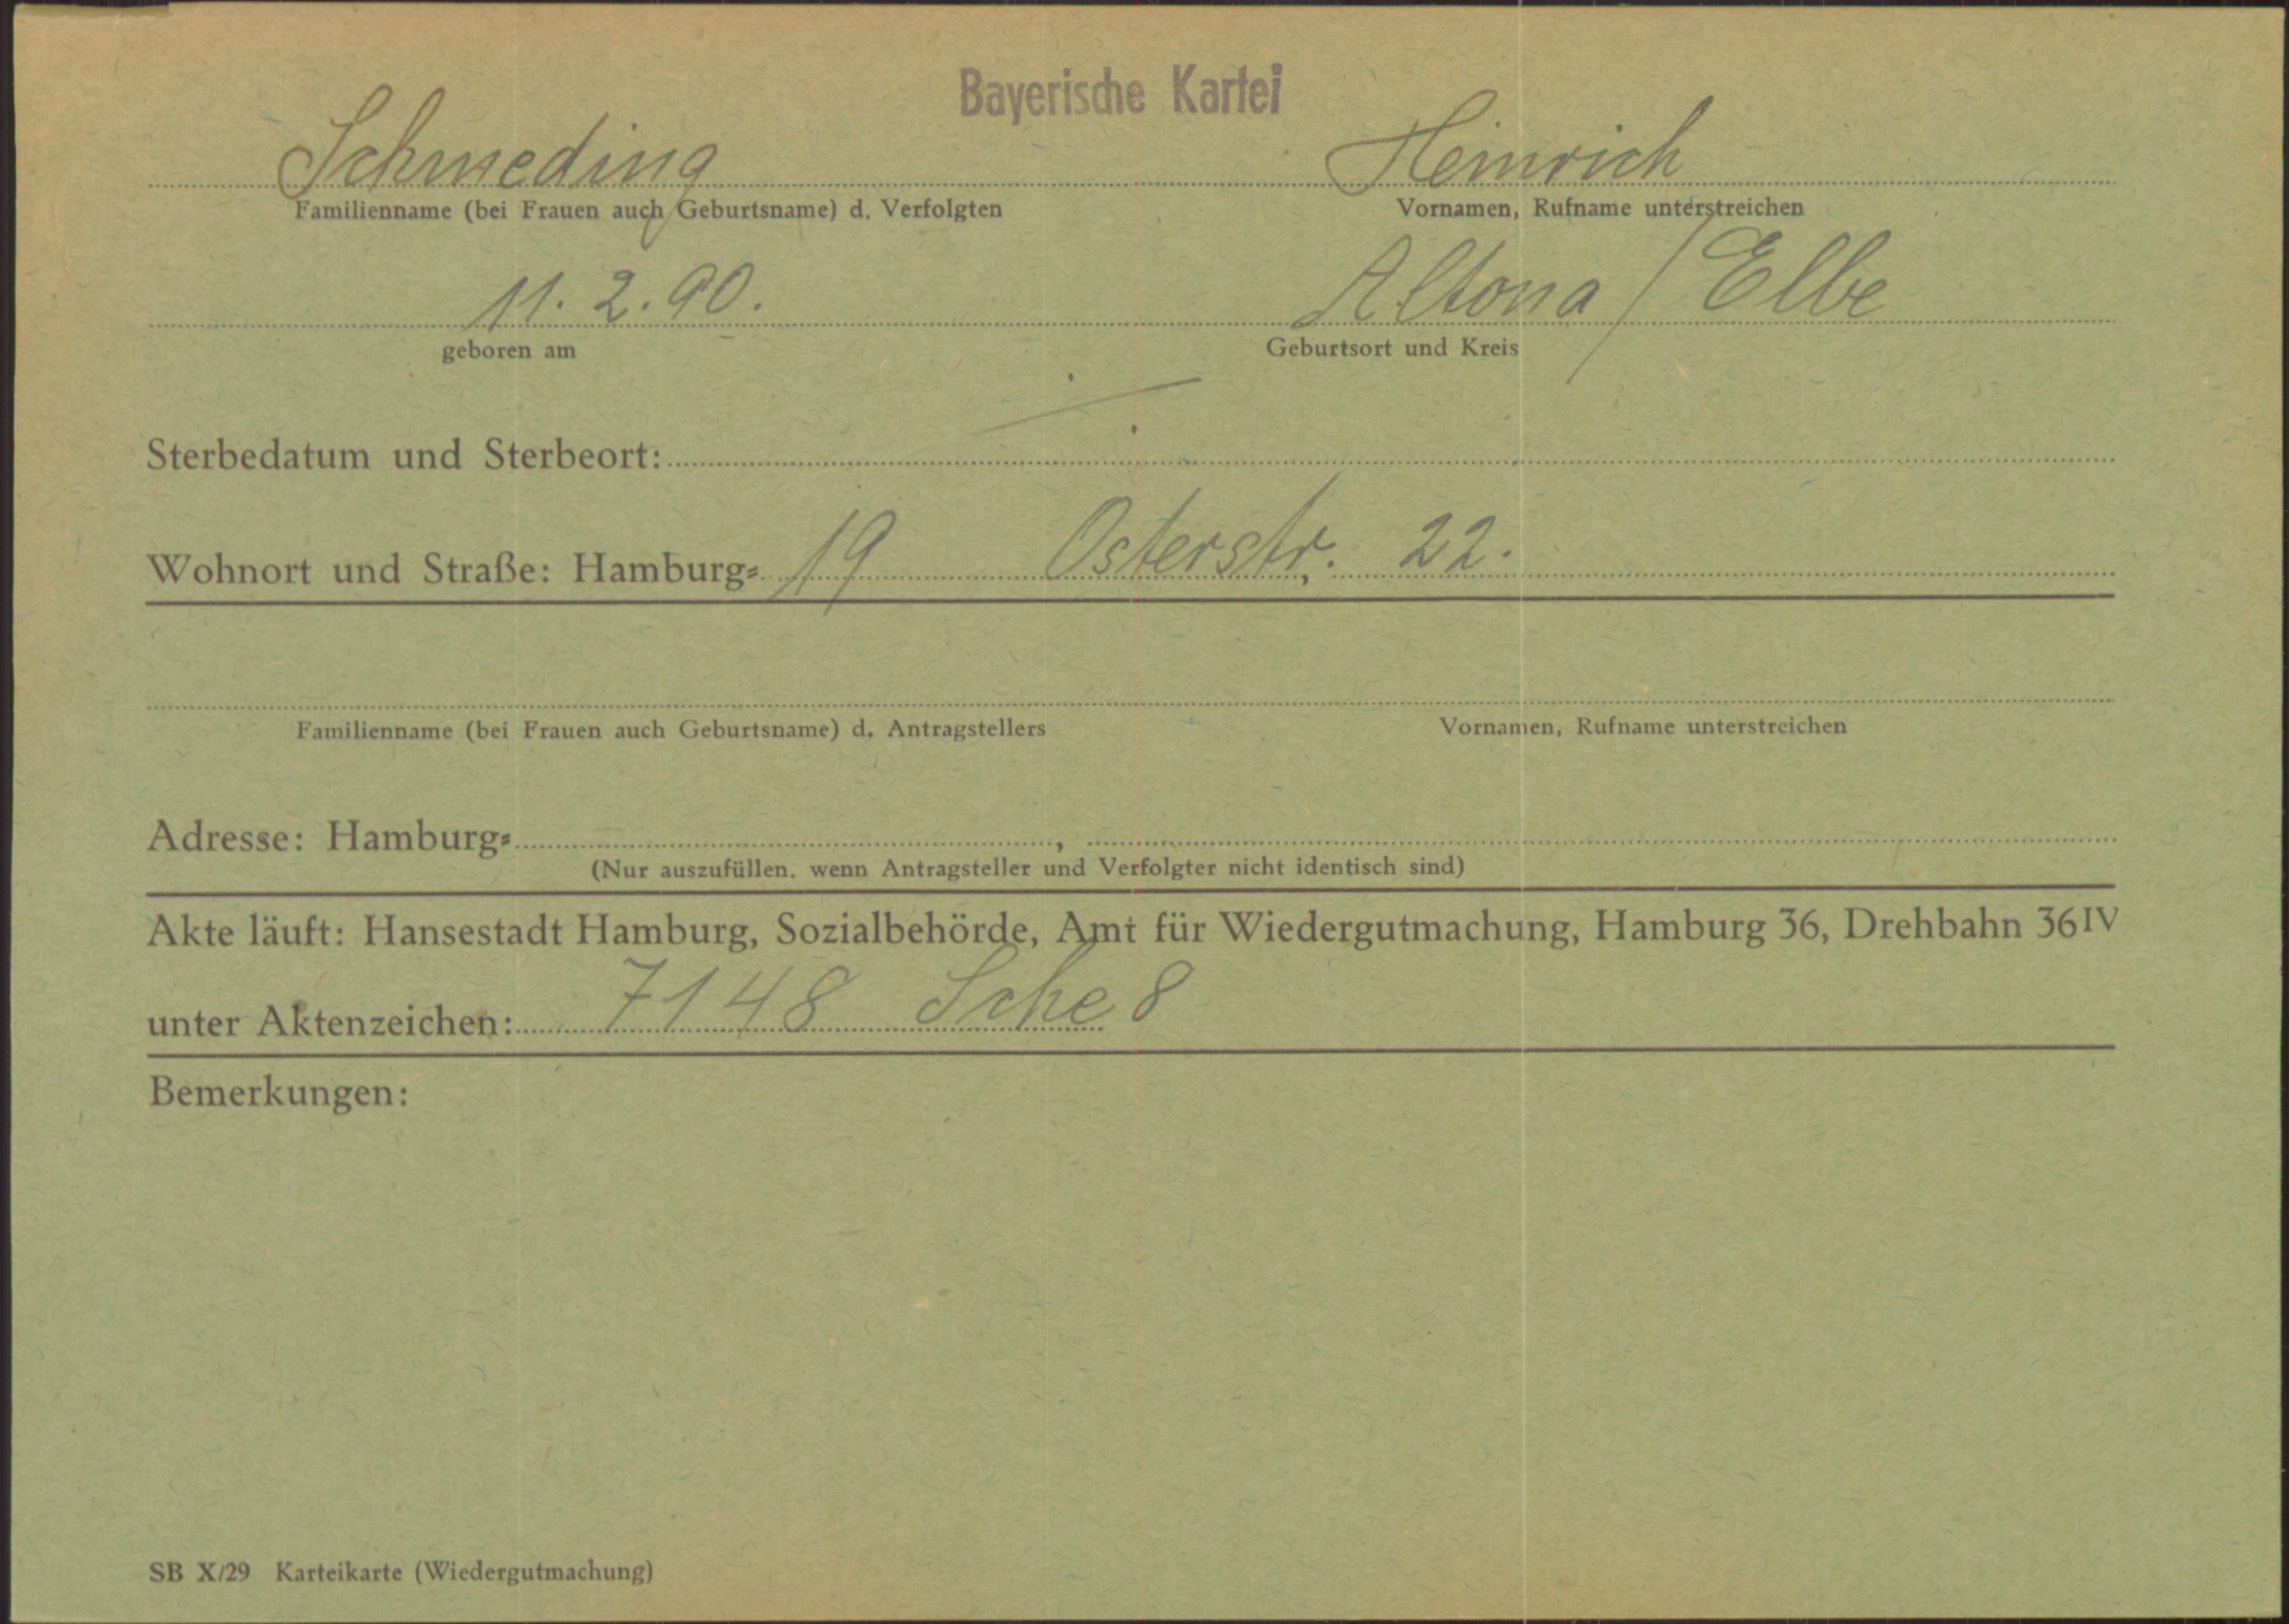 Bayerische Kartei
Schmeding Heinrich
Familienname (bei Frauen auch Geburtsname) d. Verfolgten Vornamen, Rufname unterstreichen
11. 2. 90. Altona / Elbe
geboren am Geburtsort und Kreis
Sterbedatum und Sterbeort:
Wohnort und Straße: Hamburg= 19 Osterstr. 22.
Familienname (bei Frauen auch Geburtsname) d. Antragstellers Vornamen, Rufname unterstreichen
Adresse: Hamburg= ,
(Nur auszufüllen. wenn Antragsteller und Verfolgter nicht identisch sind)
Akte läuft: Hansestadt Hamburg, Sozialbehörde, Amt für Wiedergutmachung, Hamburg 36, Drehbahn 36 IV
unter Aktenzeichen: 7148 Sche 8
Bemerkungen:
SB X/29 Karteikarte (Wiedergutmachung)